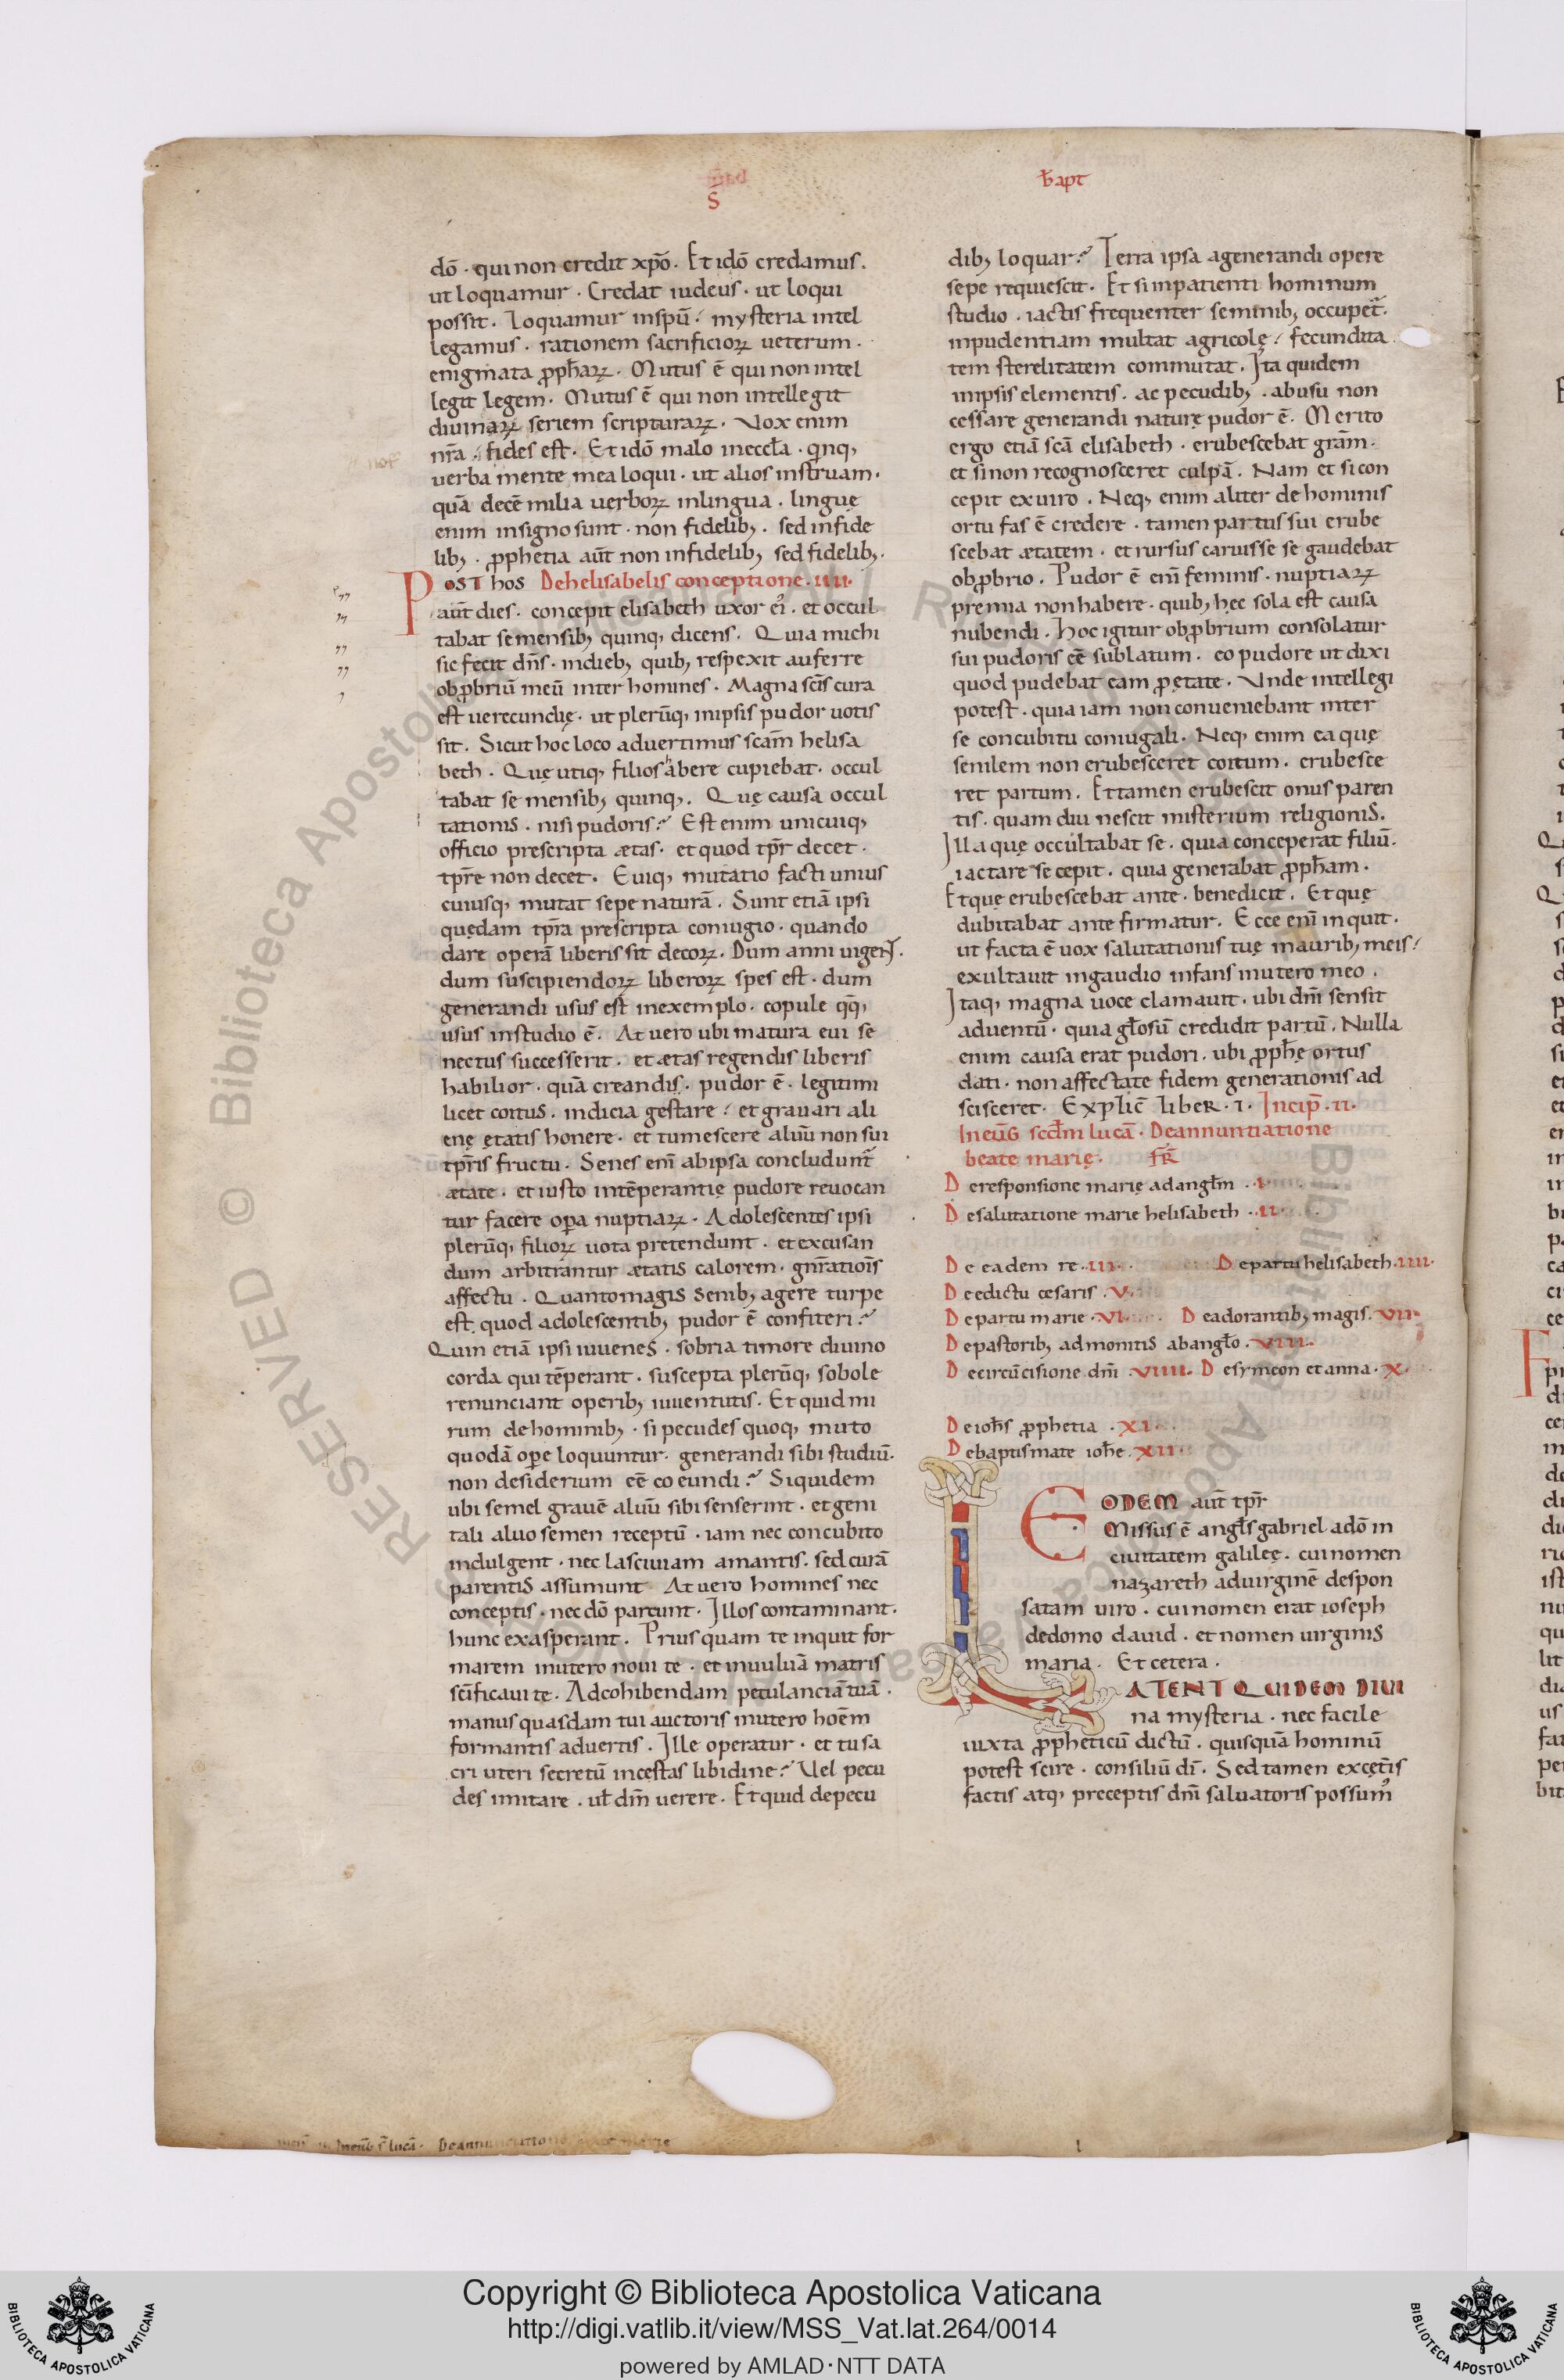 S̄
b̄apt
dō · qui non credit xp̄o. Et idō credamus.
ut loquamur · Credat iudeus · ut loqui
possit. Loquamur in sp̄u; mysteria intel
legamus · rationem sacrificioꝝ ueterum ·
enigmata ꝓph̄aꝝ · Mutus ē qui non intel
legit legem. Mutus ē qui non intellegit
diuinaꝝ seriem scripturaꝝ. Vox enim
nr̄a fides est. Et idō malo in eccl̄a · qͥnqꝫ
uerba mente mea loqui · ut alios instruam ·
quā decē milia uerboꝝ in lingua. linguę
enim in signo sunt · non fidelibꝫ. sed infide
libꝫ · ꝓphetia aūt non infidelibꝫ sed fidelibꝫ.
POST hos De helisabelis conceptione · IIII ·
aūt dies · concepit elisabeth uxor ei᾽. et occul
tabat se mensibꝫ quinqꝫ dicens. Quia michi
sic fecit dn̄s · in diebꝫ quibꝫ respexit auferre
obꝓbriū meū inter homines. Magna scīs cura
est uerecundię · ut plerūqꝫ in ipsis pudor uotis
sit. Sicut hoc loco aduertimus scām helisa
beth. Quę utiqꝫ filios ʰabere cupiebat · occul
tabat se mensibꝫ quinqꝫ. Quę causa occul
tationis. nisi pudoris? Est enim unicuiqꝫ
officio prescripta ætas · et quod tp̄r decet.
tp̄re non decet. Euiqꝫ mutatio facti unius
cuiusqꝫ mutat sepe naturā. Sunt etiā ipsi
quędam tp̄ra prescripta coniugio · quando
dare operā liberis sit decoꝝ. Dum anni uigent.
dum suscipiendoꝝ liberoꝝ spes est · dum
generandi usus est in exemplo · copule qͥqꝫ
usus in studio ē. At uero ubi matura eui se
nectus successerit. et ætas regendis liberis
habilior · quā creandis · pudor ē · legitimi
licet coitus · indicia gestare; et grauari ali
enę ętatis honere · et tumescere aluū non sui
tp̄ris fructu. Senes enī ab ipsa concludunt᷑
ætate · et iusto intēperantię pudore reuocan
tur facere oꝑa nuptiaꝝ · Adolescentes ipsi
plerūqꝫ filioꝝ uota pretendunt · et excusan
dum arbitrantur ætatis calorem · gn̄ratiōis
affectu. Quanto magis senibꝫ agere turpe
est quod adolescentibꝫ pudor ē confiteri?
Quin etiā ipsi iuuenes · sobria timore diuino
corda qui tēperant · suscepta plerūqꝫ sobole
renunciant operibꝫ iuuentutis. Et quid mi
rum de hominibꝫ · si pecudes quoqꝫ muto
quodā oꝑe loquuntur · generandi sibi studiū.
non desiderium eē coeundi? Siquidem
ubi semel grauē aluū sibi senserint · et geni
tali aluo semen receptū · iam nec concubito
indulgent · nec lasciuiam amantis. sed curā
parentis assumunt At uero homines nec
conceptis · nec dō parcunt. Illos contaminant.
hunc exasperant. Prius quam te inquit for
marem in utero noui te · et in uuluā matris
scīficaui te. Ad cohibendam petulanciā tuā.
manus quasdam tui auctoris in utero hoēm
formantis aduertis. Ille operatur · et tu sa
cri uteri secretū incestas libidine? Vel pecu
des imitare. ul̄ dm̄ uerere. Et quid de pecu
dibꝫ loquar? Terra ipsa a generandi opere
sepe requiescit. Et si inpatienti hominum
studio. iactis frequenter seminibꝫ occupet᷑.
inpudentiam multat agricolę; fecundita
tem sterelitatem commutat. Ita quidem
in ipsis elementis. ac pecudibꝫ. abusu non
cessare generandi naturę pudor ē. Merito
ergo etiā scā elisabeth · erubescebat grām.
et si non recognosceret culpā. Nam et si con
cepit ex uiro. Neqꝫ enim aliter de hominis
ortu fas ē credere · tamen partus sui erube
scebat ætatem · et rursus caruisse se gaudebat
obꝓbrio. Pudor ē enī feminis · nuptiaꝝ
premia non habere · quibꝫ hęc sola est causa
nubendi. Hoc igitur obꝓbrium consolatur
sui pudoris eē sublatum. eo pudore ut dixi
quod pudebat eam ꝓ ętate. Vnde intellegi
potest. quia iam non conueniebant inter
se concubitu coniugali. Neqꝫ enim ea quę
senilem non erubesceret coitum. erubesce
ret partum. Et tamen erubescit onus paren
tis. quam diu nescit misterium religionis.
Illa quę occultabat se. quia conceperat filiū.
iactare se cepit. quia generabat ꝓph̄am.
Et que erubescebat ante · benedicit. Et quę
dubitabat ante firmatur. Ecce enī inquit.
ut facta ē uox salutationis tuę in auribꝫ meis;
exultauit in gaudio infans in utero meo.
Itaqꝫ magna uoce clamauit. ubi dn̄i sensit
aduentū · quia gl̄osū credidit partū. Nulla
enim causa erat pudori. ubi ꝓph̄ę ortus
dati · non affectate fidem generationis ad
scisceret. Explic̄ Liber · I · Incip̄ · II ·
In euḡ scd̄m lucā · De annuntiatione
beate marię. fr̄
De responsione marię ad angl̄m · I
De salutatione marie helisabeth · II
De eadem re · III · De partu helisabeth · IIII ·
De edictu cesaris · V
De partu marie · VI De adorantibꝫ magis. VII
De pastoribꝫ admonitis ab angl̄o · VIII ·
De circūcisione dn̄i · VIIII · De symeon et anna · X ·
De ioh̄s ꝓphetia · XI
De baptismate ioh̄e · XII
EODEM aūt tp̄r
Missus ē angl̄s gabriel a dō in
ciuitatem galilęę. cui nomen
nazareth ad uirginē despon
satam uiro. cui nomen erat ioseph
de domo dauid · et nomen uirginis
maria. Et cetera.
LATENT QUIDEM DIVI
na mysteria · nec facile
iuxta ꝓpheticū dictū. quisquā hominū
potest scire · consiliū dī. Sed tamen ex cęt̄is
factis atqꝫ preceptis dn̄i saluatoris possum᾽
RESERVED © Biblioteca Apostolica Vaticana ALL RIGHTS
Copyright © Biblioteca Apostolica Vaticana
http://digi.vatlib.it/view/MSS_Vat.lat.264/0014
powered by AMLAD·NTT DATA
BIBLIOTECA APOSTOLICA VATICANA
BIBLIOTECA APOSTOLICA VATICANA